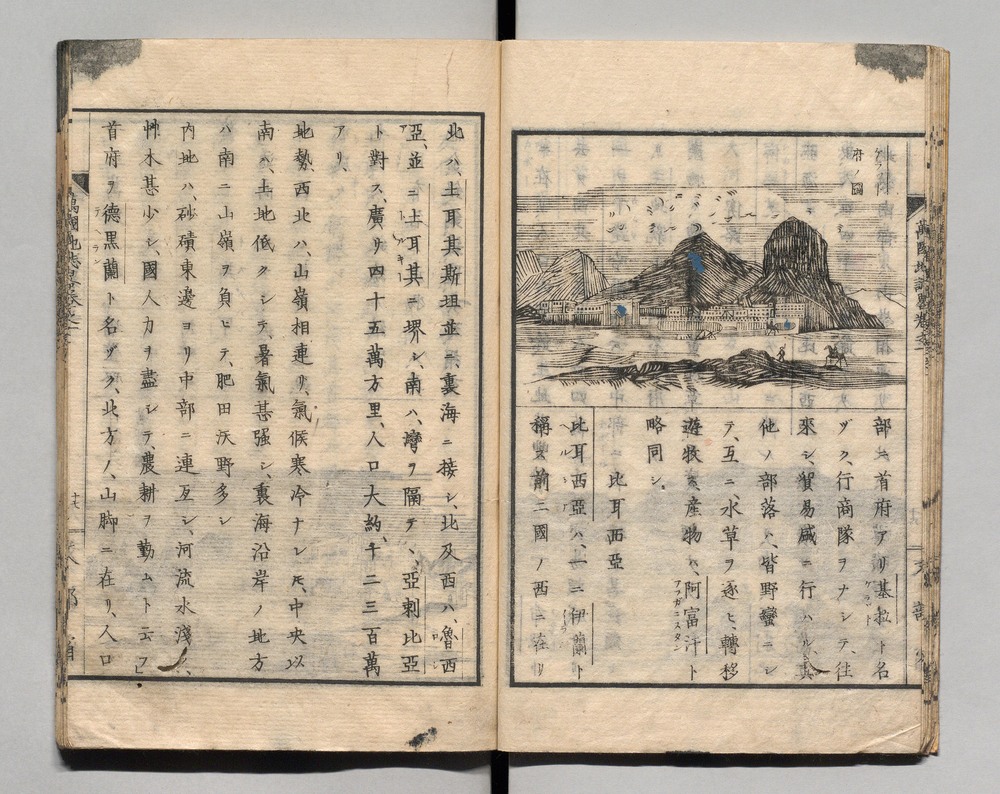 府ノ圖
部ニ首府アリ、基拉ト名
ケラット
ヅク、行商隊ヲナシテ、往
來シ、貿易盛ニ行ハル、其
他ノ部落ハ、皆野蠻ニシ
テ、互ニ水草ヲ逐ヒ、轉移
遊牧ス、産物ハ、阿富汗ト
アフガニスタン
略同シ、
比耳西亞
比耳西亞ハ、一ニ伊蘭ト
ペルシア
イラン
稱ス、前二國ノ西ニ在リ
北ハ、土耳其斯坦並ニ、裏海ニ接シ、北及西ハ、魯西
ロシ
亞、並ニ土耳其ニ堺シ、南ハ、灣ヲ隔テ、亞剌比亞
ア
トルキー
ト對ス、廣リ四十五萬方里、人口大約、千二三百萬
アリ、
地勢、西北ハ、山嶺相連リ、氣候寒冷ナレ𪜈、中央以
南ハ、土地低クシテ、暑氣甚強シ、裏海沿岸ノ地方
ハ南ニ山嶺ヲ負ヒテ、肥田沃野多シ
内地ハ、砂磧東邊ヨリ中部ニ連亙シ、河流水淺ク、
艸木甚少シ、國人力ヲ盡シテ、農耕ヲ勤ムト云フ、
首府ヲ德黑蘭ト名ヅク、北方ノ、山脚ニ在リ、人口
テヘラン